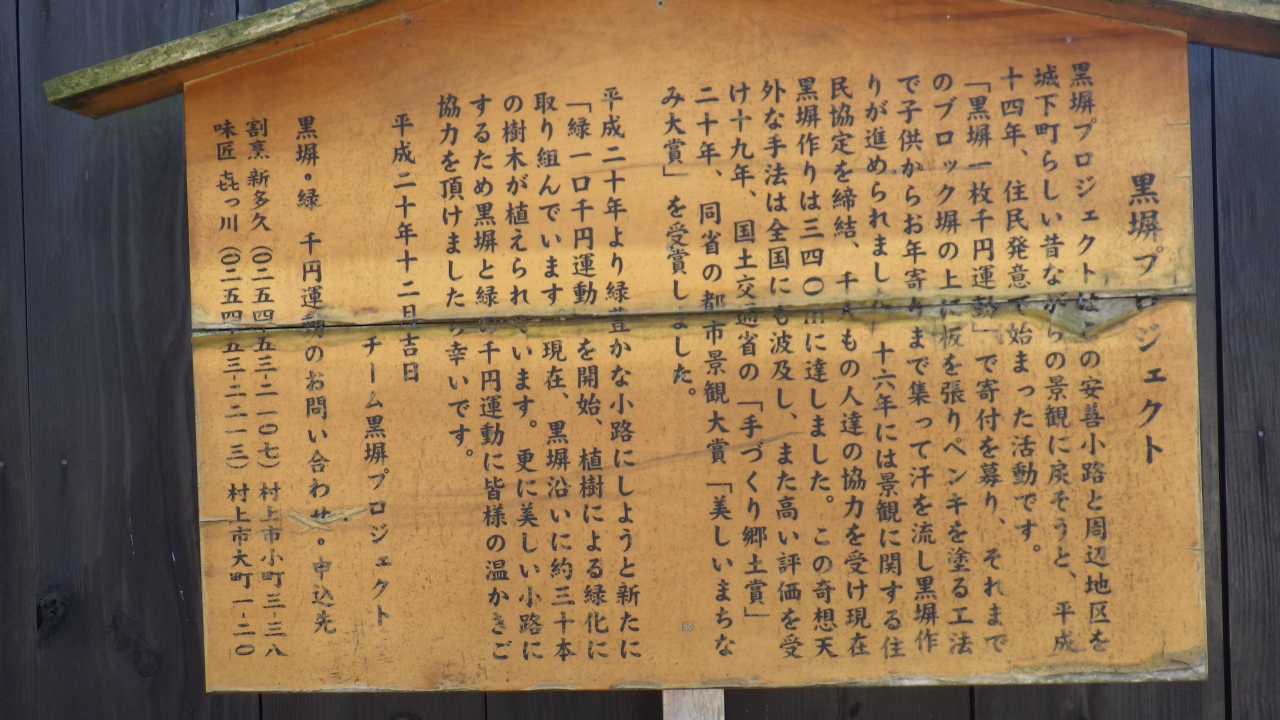 黒塀プロジェクト
黒塀プロジェクトは の安善小路と周辺地区を
城下町らしい昔ながらの景観に戻そうと、平成
十四年、住民発意で始まった活動です。
「黒塀一枚千円運動」で寄付を募り、それまで
のブロック塀の上に板を張りペンキを塗る工法
で子供からお年寄りまで集って汗を流し黒塀作
りが進められました 十六年には景観に関する住
民協定を締結、千 もの人達の協力を受け現在
黒塀作りは三四〇 に達しました。この奇想天
外な手法は全国にも波及し、また高い評価を受
け十九年、国土交通省の「手づくり郷土賞」
二十年、同省の都市景観大賞「美しいまちな
み大賞」を受賞しました。
平成二十年より緑豊かな小路にしようと新たに
「緑一口千円運動 を開始、植樹による緑化に
取り組んでいます 現在、黒塀沿いに約三十本
の樹木が植えられています。更に美しい小路に
するため黒塀と緑の千円運動に皆様の温かきご
協力を頂けました ら幸いです。
平成二十年十二月吉日
チーム黒塀プロジェクト
黒塀・緑 千円運動のお問い合わせ・申込先
割烹 新多久(〇二五四-五三-二一〇七)村上市小町三-三八
味匠 㐂っ川(〇二五四-五三-二二一三)村上市大町一-二〇